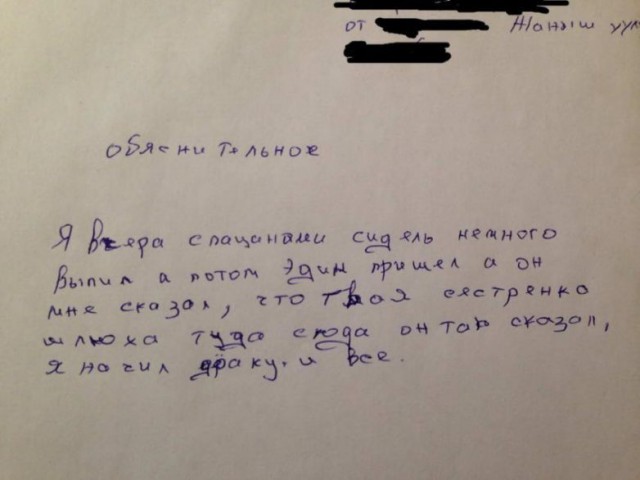 от Жаныш уул
обяснительное
Я вчера спацанами сидель немного
выпил а потом эдин пришел а он
мне сказал, что твоя сестренка
шлюха туда сюда он так сказал,
я начил драку. и все.